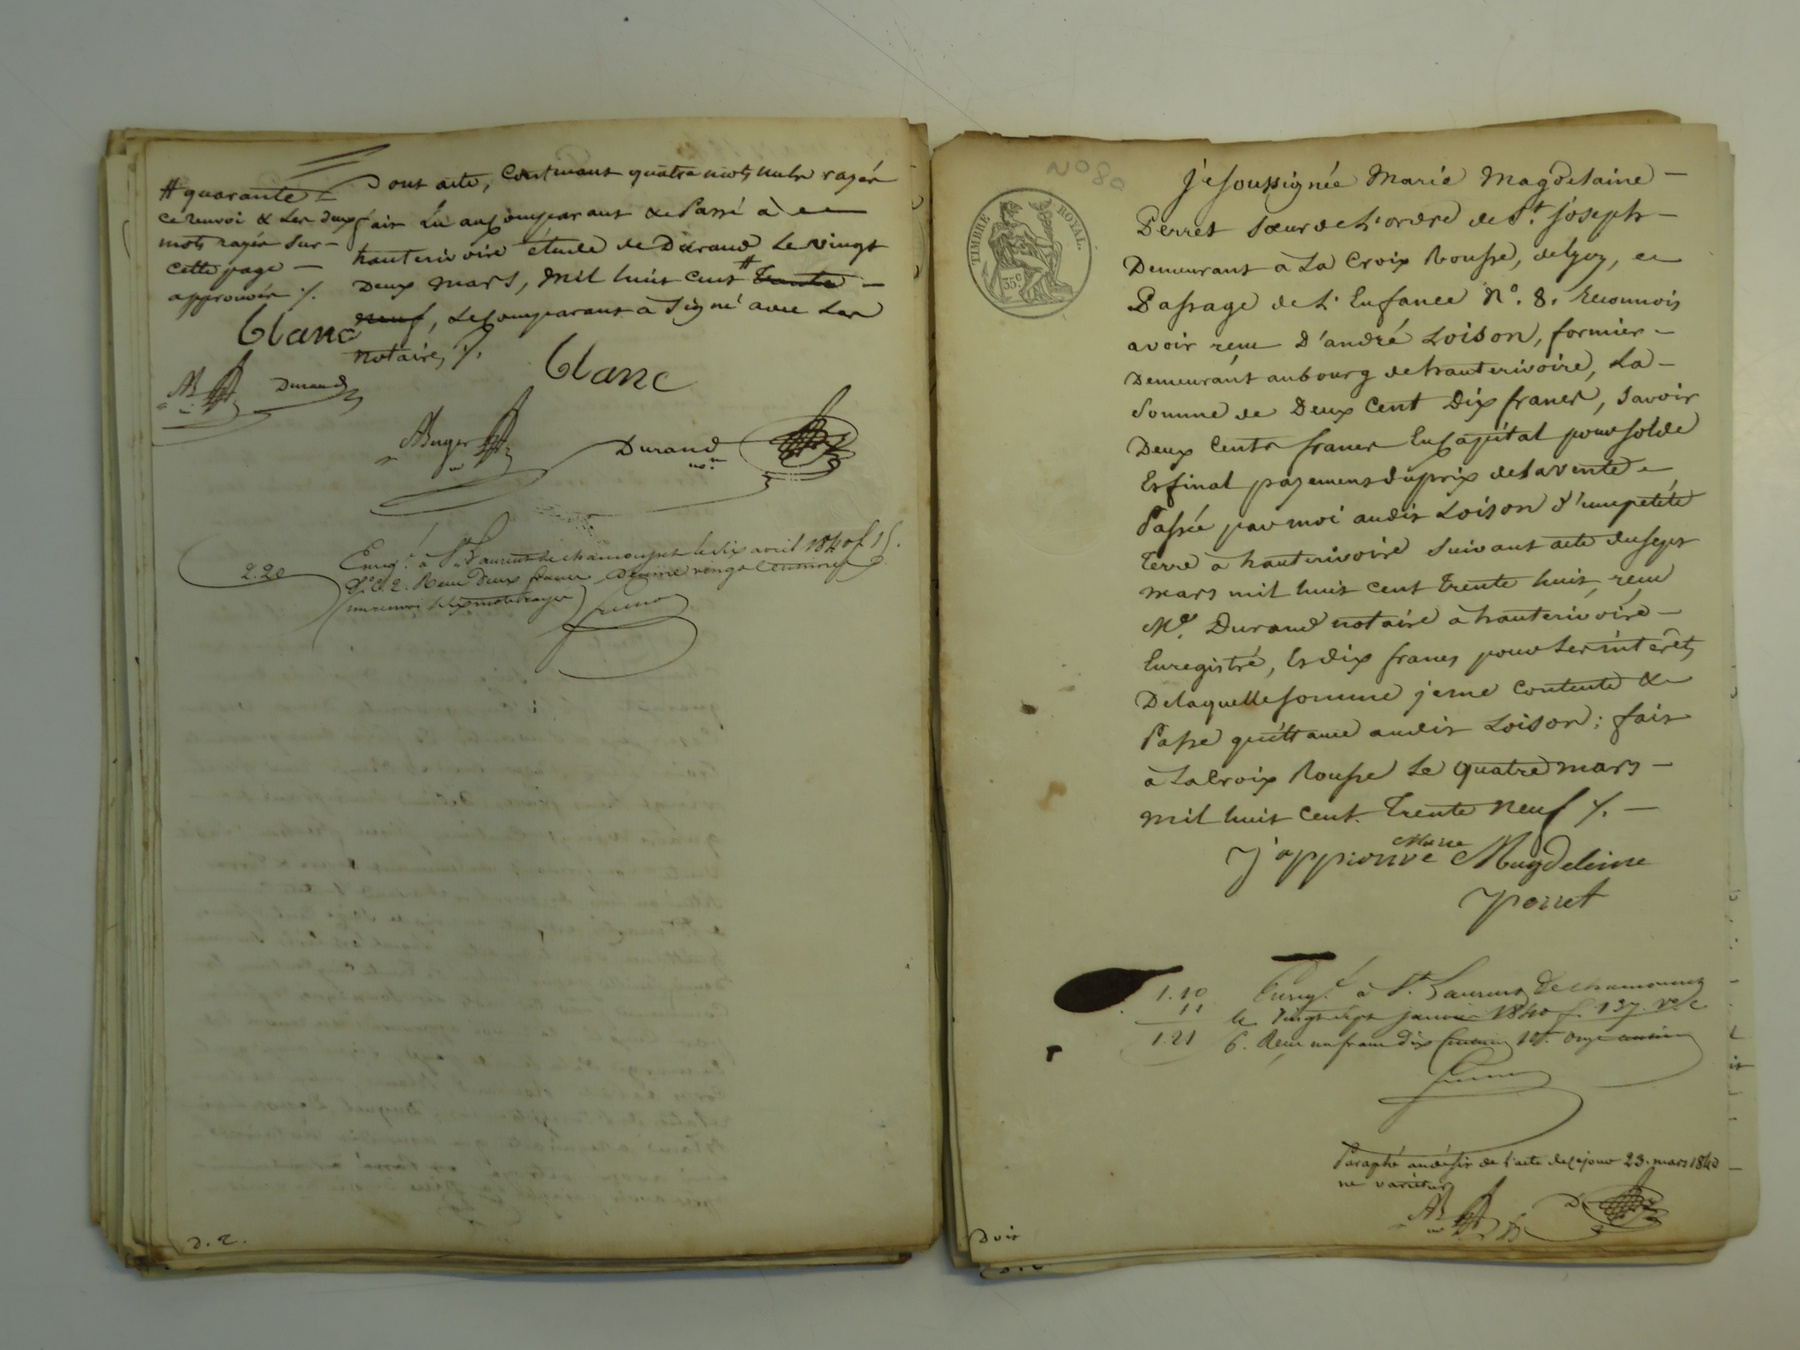 # quarante
ce renvoi & les deux
mots rayés sur
cette page
approuvés ./.
Blanc
AB Durand
Dont acte, contenant quatre mots nuls rayés
fait lu au comparant & Passé à
hauterivoire étude de Durand Le vingt
Deux mars, mil huit cent # trente
neuf, Le comparant à Signé avec Les
notaires ./.
Blanc
Auger Durand
nore
2.20
Enregt. à St Laurent de chamousset le six avril 1840 f. 15.
Reçu deux francs Décime vingt centimes
d. r.
N080
TIMBRE ROYAL.
35c
Je soussignée Marie Magdelaine
Perret Sœur de L'ordre de St. Joseph
Demeurant à La Croix Rousse,
Passage de L'Enfance No. 8. Reconnois
avoir reçu D'andré Loison, fermier
Demeurant au bourg de hauterivoire, La
Somme de Deux Cent Dix francs, Savoir
Deux Cents francs En Capital pour Solde
Et final payement du prix de la vente
Passée par moi audit Loison d'une petite
terre à hauterivoire Suivant acte du sept
mars mil huit cent trente huit, reçu
Me. Durand notaire à hauterivoire
Enregistré, Et dix francs pour Les intérêts
De laquelle somme je me Contente &
Passe quittance audit Loison; fait
à La Croix Rousse Le quatre mars
mil huit Cent. Trente Neuf ./.
J'approuve Marie Magdeleine
Perret
1.10
11
1.21
Enregt. à St. Laurent De chamousset
le vingt sept janvier 1840 f. 137. vo. c
6. Reçu un franc dix centimes 10e. onze centimes
Paraphé au désir de l'acte de ce jour 23. mars 1840
ne varietur
AB D
Doit